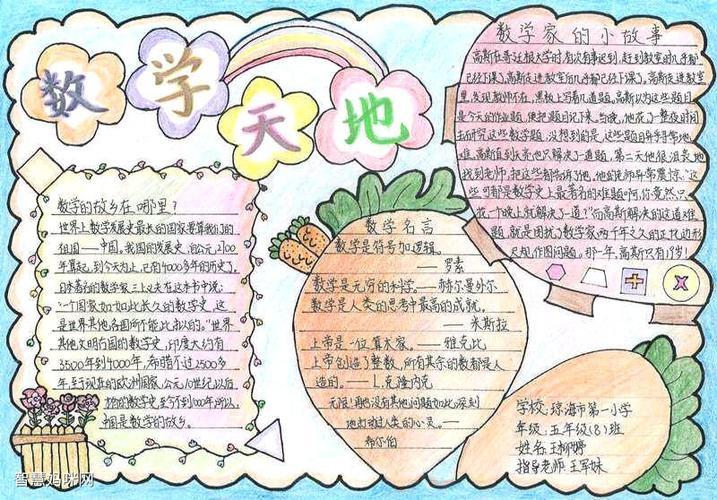 数学天地
数学的故乡在哪里？
世界上数学发展史最长的国家要算我们的
祖国——中国。我国的发展史，自公元前2700
年算起，到今天为止，已有4000多年的历史了。
日本著名的数学家三上义夫在这本书中说：
“一个国家如此长久的数学史，这
是世界其他各国所不能比拟的。”世界
其他文明古国的数学史，印度大约有
3500年到4000年，希腊不过2500多
年，至于现在的欧洲国家，公元10世纪以后
的数学史，至今不到1000年。所以，
中国是数学的故乡。
数学名言
数学是符号加逻辑。
——罗素
数学是无穷的科学。——赫尔曼外尔
数学是人类的思考中最高的成就。
——米斯拉
上帝是一位算术家。——雅克比
上帝创造了整数，所有其余的数都是人
造的。——L.克隆内克
无限！再也没有其他问题如此深刻
地打动过人类的心灵。——
希尔伯
数学家的小故事
高斯在哥廷根大学时，有次有事迟到，赶到教室时，几乎都
已经下课了。高斯走进教室
里，发现教师不在，黑板上写着几道题。高斯以为这些题目
是今天的作业题，便把题目记下来。当晚，他花了整夜时间
去研究这些数学题，没想到的是，这些题目异乎寻常地
难，高斯直到天亮也只解决了一道题，第二天他很沮丧地
找到老师，把这些都告诉了他，他的老师异常震惊：“这
些可都是数学史上最著名的难题啊，你竟然只
花一个晚上就解决了一道？”而高斯解决的这道难
题，就是困扰了数学家两千年之久的正17边形
尺规作图问题。那一年，高斯只有18岁！
学校：琼海市第一小学
年级：五年级（8）班
姓名：王柳婷
指导老师：王军妹
智慧妈咪网